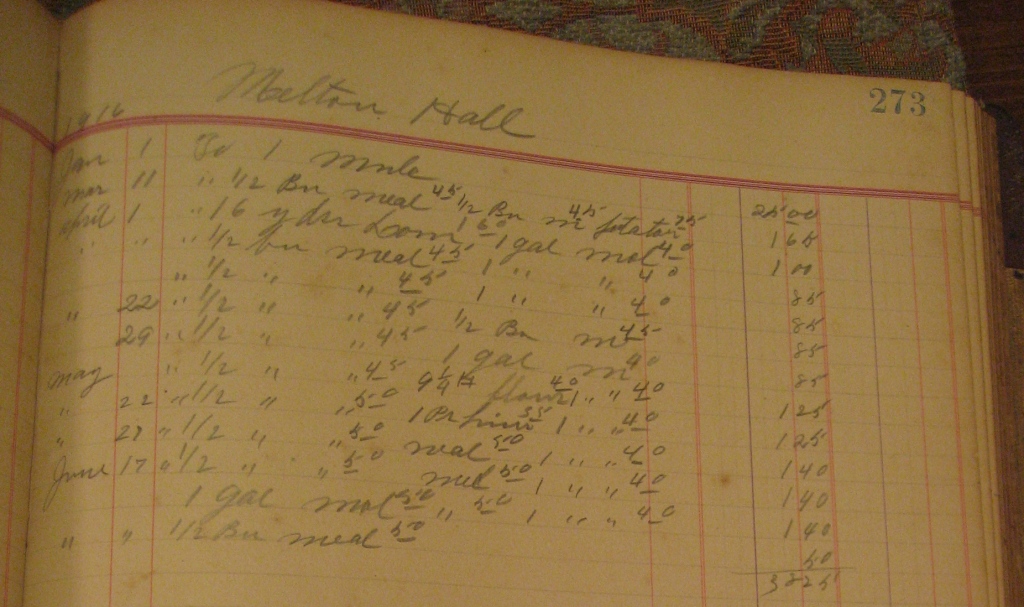 273
Melton Hall
1916
Jan 1 To 1 mule 25 00
mar 11 " 1/2 Bu meal 45 1/2 Bu m 45 potatoes 75 1 65
April 1 " 16 yds 1 00
" " " 1/2 bu meal 45 1 gal mol 40 85
" 1/2 " " 45 1 " " 40 85
" 22 " 1/2 " " 45 1 " " 40 85
29 " 1/2 " " 45 1/2 Bu m 45
may " 1/2 " " 45 1 gal m 40 85
" 22 " 1/2 " " 50 flour 40 1 " " 40 1 25
" 27 " 1/2 " " 50 1 Pr 35 1 " " 40 1 25
June 17 " 1/2 " " 50 meal 50 1 " " 40 1 40
1 gal mol 50 " 50 1 " " 40 1 40
" " 1/2 Bu meal 50 50
38 25